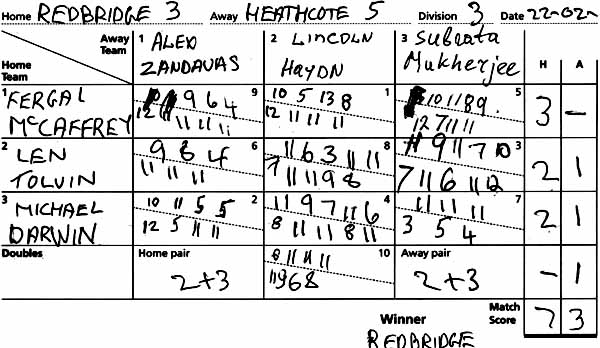 Home REDBRIDGE 3 Away HEATHCOTE 5 Division 3 Date 22-02-
Away Team 1 ALEX ZANDAUAS 2 LINCOLN HAYDN 3 Subrata Mukherjee H A
Home Team
1 FERGAL McCAFFREY 9 1 5 3 -
11 9 6 4 10 5 13 8 10 11 8 9
12 11 11 11 12 11 11 11 12 7 11 11
2 LEN TOLVIN 6 8 3 2 1
9 8 4 11 6 3 11 11 11 9 11 7 10
11 11 11 7 11 11 9 8 7 11 6 11 12
3 MICHAEL DARWIN 2 4 7 2 1
10 11 5 5 11 9 7 11 6 11 11 11
12 5 11 11 8 11 11 8 11 3 5 4
Doubles Home pair 10 Away pair - 1
8 11 11 11
2+3 11 9 6 8 2+3
Winner Match Score 7 3
REDBRIDGE